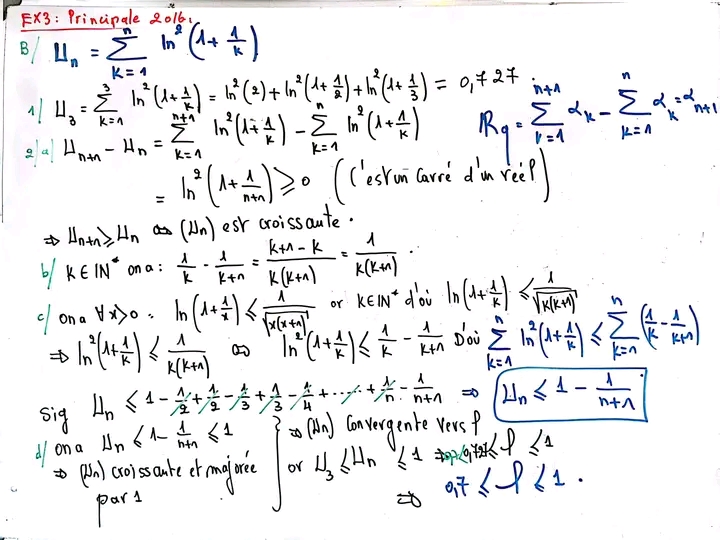 EX3: Principale 2016.
B/ Un = ∑_{k=1}^{n} ln²(1+1/k)
1/ U3 = ∑_{k=1}^{3} ln²(1+1/k) = ln²(2)+ln²(1+1/2)+ln²(1+1/3) = 0,727.
Rq = ∑_{k=1}^{n+1} αk − ∑_{k=1}^{n} αk = αn+1
2/a/ Un+1 − Un = ∑_{k=1}^{n+1} ln²(1+1/k) − ∑_{k=1}^{n} ln²(1+1/k)
= ln²(1+1/(n+1)) ⩾ 0 (C'est un Carré d'un réel)
⇒ Un+1 ⩾ Un ⇔ (Un) est croissante.
b/ K∈IN* on a : 1/k − 1/(k+1) = (k+1−k)/(k(k+1)) = 1/(k(k+1)).
c/ on a ∀x>0 : ln(1+1/x) ⩽ 1/√(x(x+1)) or K∈IN* d'où ln(1+1/k) ⩽ 1/√(k(k+1))
⇒ ln²(1+1/k) ⩽ 1/(k(k+1)) ⇔ ln²(1+1/k) ⩽ 1/k − 1/(k+1) D'où ∑_{k=1}^{n} ln²(1+1/k) ⩽ ∑_{k=1}^{n} (1/k − 1/(k+1))
Sig Un ⩽ 1 − 1/2 + 1/2 − 1/3 + 1/3 − 1/4 + ...... + 1/n − 1/(n+1) ⇒ Un ⩽ 1 − 1/(n+1)
d/ on a Un ⩽ 1 − 1/(n+1) ⩽ 1
⇒ (Un) croissante et majorée
par 1
⇒ (Un) Convergente vers l
or U3 ⩽ Un ⩽ 1 ⇒ 0,727 ⩽ l ⩽ 1
⇒ 0,7 ⩽ l ⩽ 1.